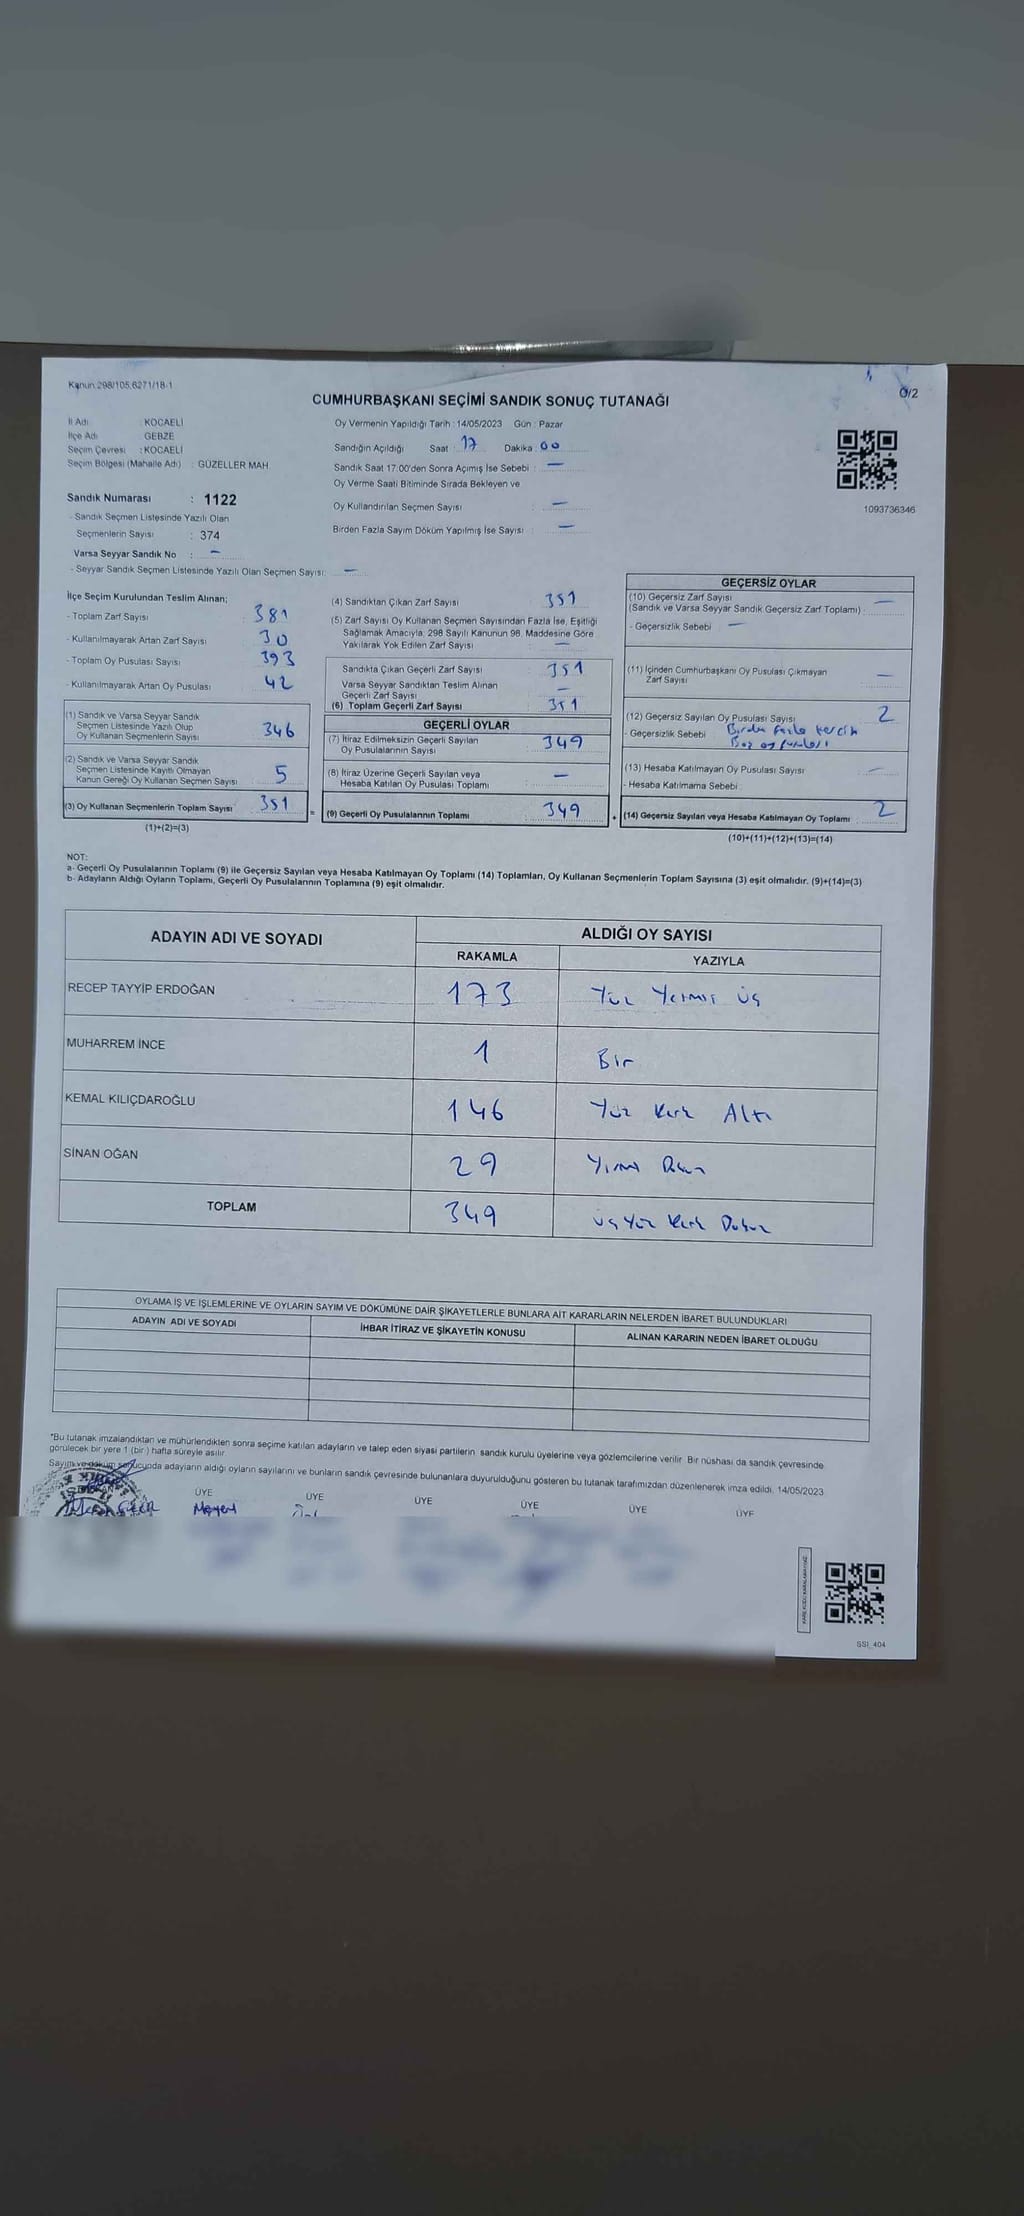 Kanun 298/105.6271/18-1
O/2
CUMHURBAŞKANI SEÇİMİ SANDIK SONUÇ TUTANAĞI
İl Adı : KOCAELİ
İlçe Adı GEBZE
Seçim Çevresi : KOCAELİ
Seçim Bölgesi (Mahalle Adı) : GÜZELLER MAH
Sandık Numarası : 1122
- Sandık Seçmen Listesinde Yazılı Olan
Seçmenlerin Sayısı : 374
Varsa Seyyar Sandık No : —
- Seyyar Sandık Seçmen Listesinde Yazılı Olan Seçmen Sayısı: —
Oy Vermenin Yapıldığı Tarih : 14/05/2023 Gün : Pazar
Sandığın Açıldığı Saat : 17 Dakika : 00
Sandık Saat 17:00'den Sonra Açımış İse Sebebi : —
Oy Verme Saati Bitiminde Sırada Bekleyen ve
Oy Kullandırılan Seçmen Sayısı : —
Birden Fazla Sayım Döküm Yapılmış İse Sayısı : —
1093736346
İlçe Seçim Kurulundan Teslim Alınan;
- Toplam Zarf Sayısı : 381
- Kullanılmayarak Artan Zarf Sayısı : 30
- Toplam Oy Pusulası Sayısı : 393
- Kullanılmayarak Artan Oy Pusulası : 42
(1) Sandık ve Varsa Seyyar Sandık
Seçmen Listesinde Yazılı Olup
Oy Kullanan Seçmenlerin Sayısı : 346
(2) Sandık ve Varsa Seyyar Sandık
Seçmen Listesinde Kayıtlı Olmayan
Kanun Gereği Oy Kullanan Seçmen Sayısı : 5
(3) Oy Kullanan Seçmenlerin Toplam Sayısı : 351
(1)+(2)=(3)
=
(4) Sandıktan Çıkan Zarf Sayısı : 351
(5) Zarf Sayısı Oy Kullanan Seçmen Sayısından Fazla İse, Eşitliği
Sağlamak Amacıyla, 298 Sayılı Kanunun 98. Maddesine Göre
Yakılarak Yok Edilen Zarf Sayısı : —
Sandıkta Çıkan Geçerli Zarf Sayısı : 351
Varsa Seyyar Sandıktan Teslim Alınan
Geçerli Zarf Sayısı : —
(6) Toplam Geçerli Zarf Sayısı : 351
GEÇERLİ OYLAR
(7) İtiraz Edilmeksizin Geçerli Sayılan
Oy Pusulalarının Sayısı : 349
(8) İtiraz Üzerine Geçerli Sayılan veya
Hesaba Katılan Oy Pusulası Toplamı : —
(9) Geçerli Oy Pusulalarının Toplamı : 349
+
GEÇERSİZ OYLAR
(10) Geçersiz Zarf Sayısı
(Sandık ve Varsa Seyyar Sandık Geçersiz Zarf Toplamı) : —
- Geçersizlik Sebebi : —
(11) İçinden Cumhurbaşkanı Oy Pusulası Çıkmayan
Zarf Sayısı : —
(12) Geçersiz Sayılan Oy Pusulası Sayısı : 2
- Geçersizlik Sebebi : Birden fazla tercih
Boş oy pusulası
(13) Hesaba Katılmayan Oy Pusulası Sayısı : —
- Hesaba Katılmama Sebebi
(14) Geçersiz Sayılan veya Hesaba Katılmayan Oy Toplamı : 2
(10)+(11)+(12)+(13)=(14)
NOT:
a- Geçerli Oy Pusulalarının Toplamı (9) ile Geçersiz Sayılan veya Hesaba Katılmayan Oy Toplamı (14) Toplamları, Oy Kullanan Seçmenlerin Toplam Sayısına (3) eşit olmalıdır. (9)+(14)=(3)
b- Adayların Aldığı Oyların Toplamı, Geçerli Oy Pusulalarının Toplamına (9) eşit olmalıdır.
ADAYIN ADI VE SOYADI ALDIĞI OY SAYISI
RAKAMLA YAZIYLA
RECEP TAYYİP ERDOĞAN 173 Yüz Yetmiş üç
MUHARREM İNCE 1 Bir
KEMAL KILIÇDAROĞLU 146 Yüz Kırk Altı
SİNAN OĞAN 29 Yirmi Dokuz
TOPLAM 349 üç Yüz Kırk Dokuz
OYLAMA İŞ VE İŞLEMLERİNE VE OYLARIN SAYIM VE DÖKÜMÜNE DAİR ŞİKAYETLERLE BUNLARA AİT KARARLARIN NELERDEN İBARET BULUNDUKLARI
ADAYIN ADI VE SOYADI İHBAR İTİRAZ VE ŞİKAYETİN KONUSU ALINAN KARARIN NEDEN İBARET OLDUĞU
*Bu tutanak imzalandıktan ve mühürlendikten sonra seçime katılan adayların ve talep eden siyasi partilerin sandık kurulu üyelerine veya gözlemcilerine verilir. Bir nüshası da sandık çevresinde
görülecek bir yere 1 (bir) hafta süreyle asılır.
Sayım ve döküm sonucunda adayların aldığı oyların sayılarını ve bunların sandık çevresinde bulunanlara duyurulduğunu gösteren bu tutanak tarafımızdan düzenlenerek imza edildi. 14/05/2023
BAŞKAN ÜYE ÜYE ÜYE ÜYE ÜYE ÜYE
KARE KODU KARALAMAYINIZ
SSI_404